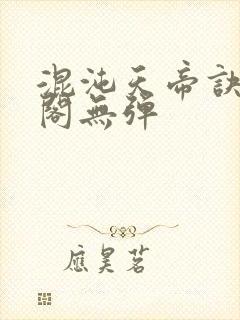 混沌天帝訣
閣無彈
應昊茗